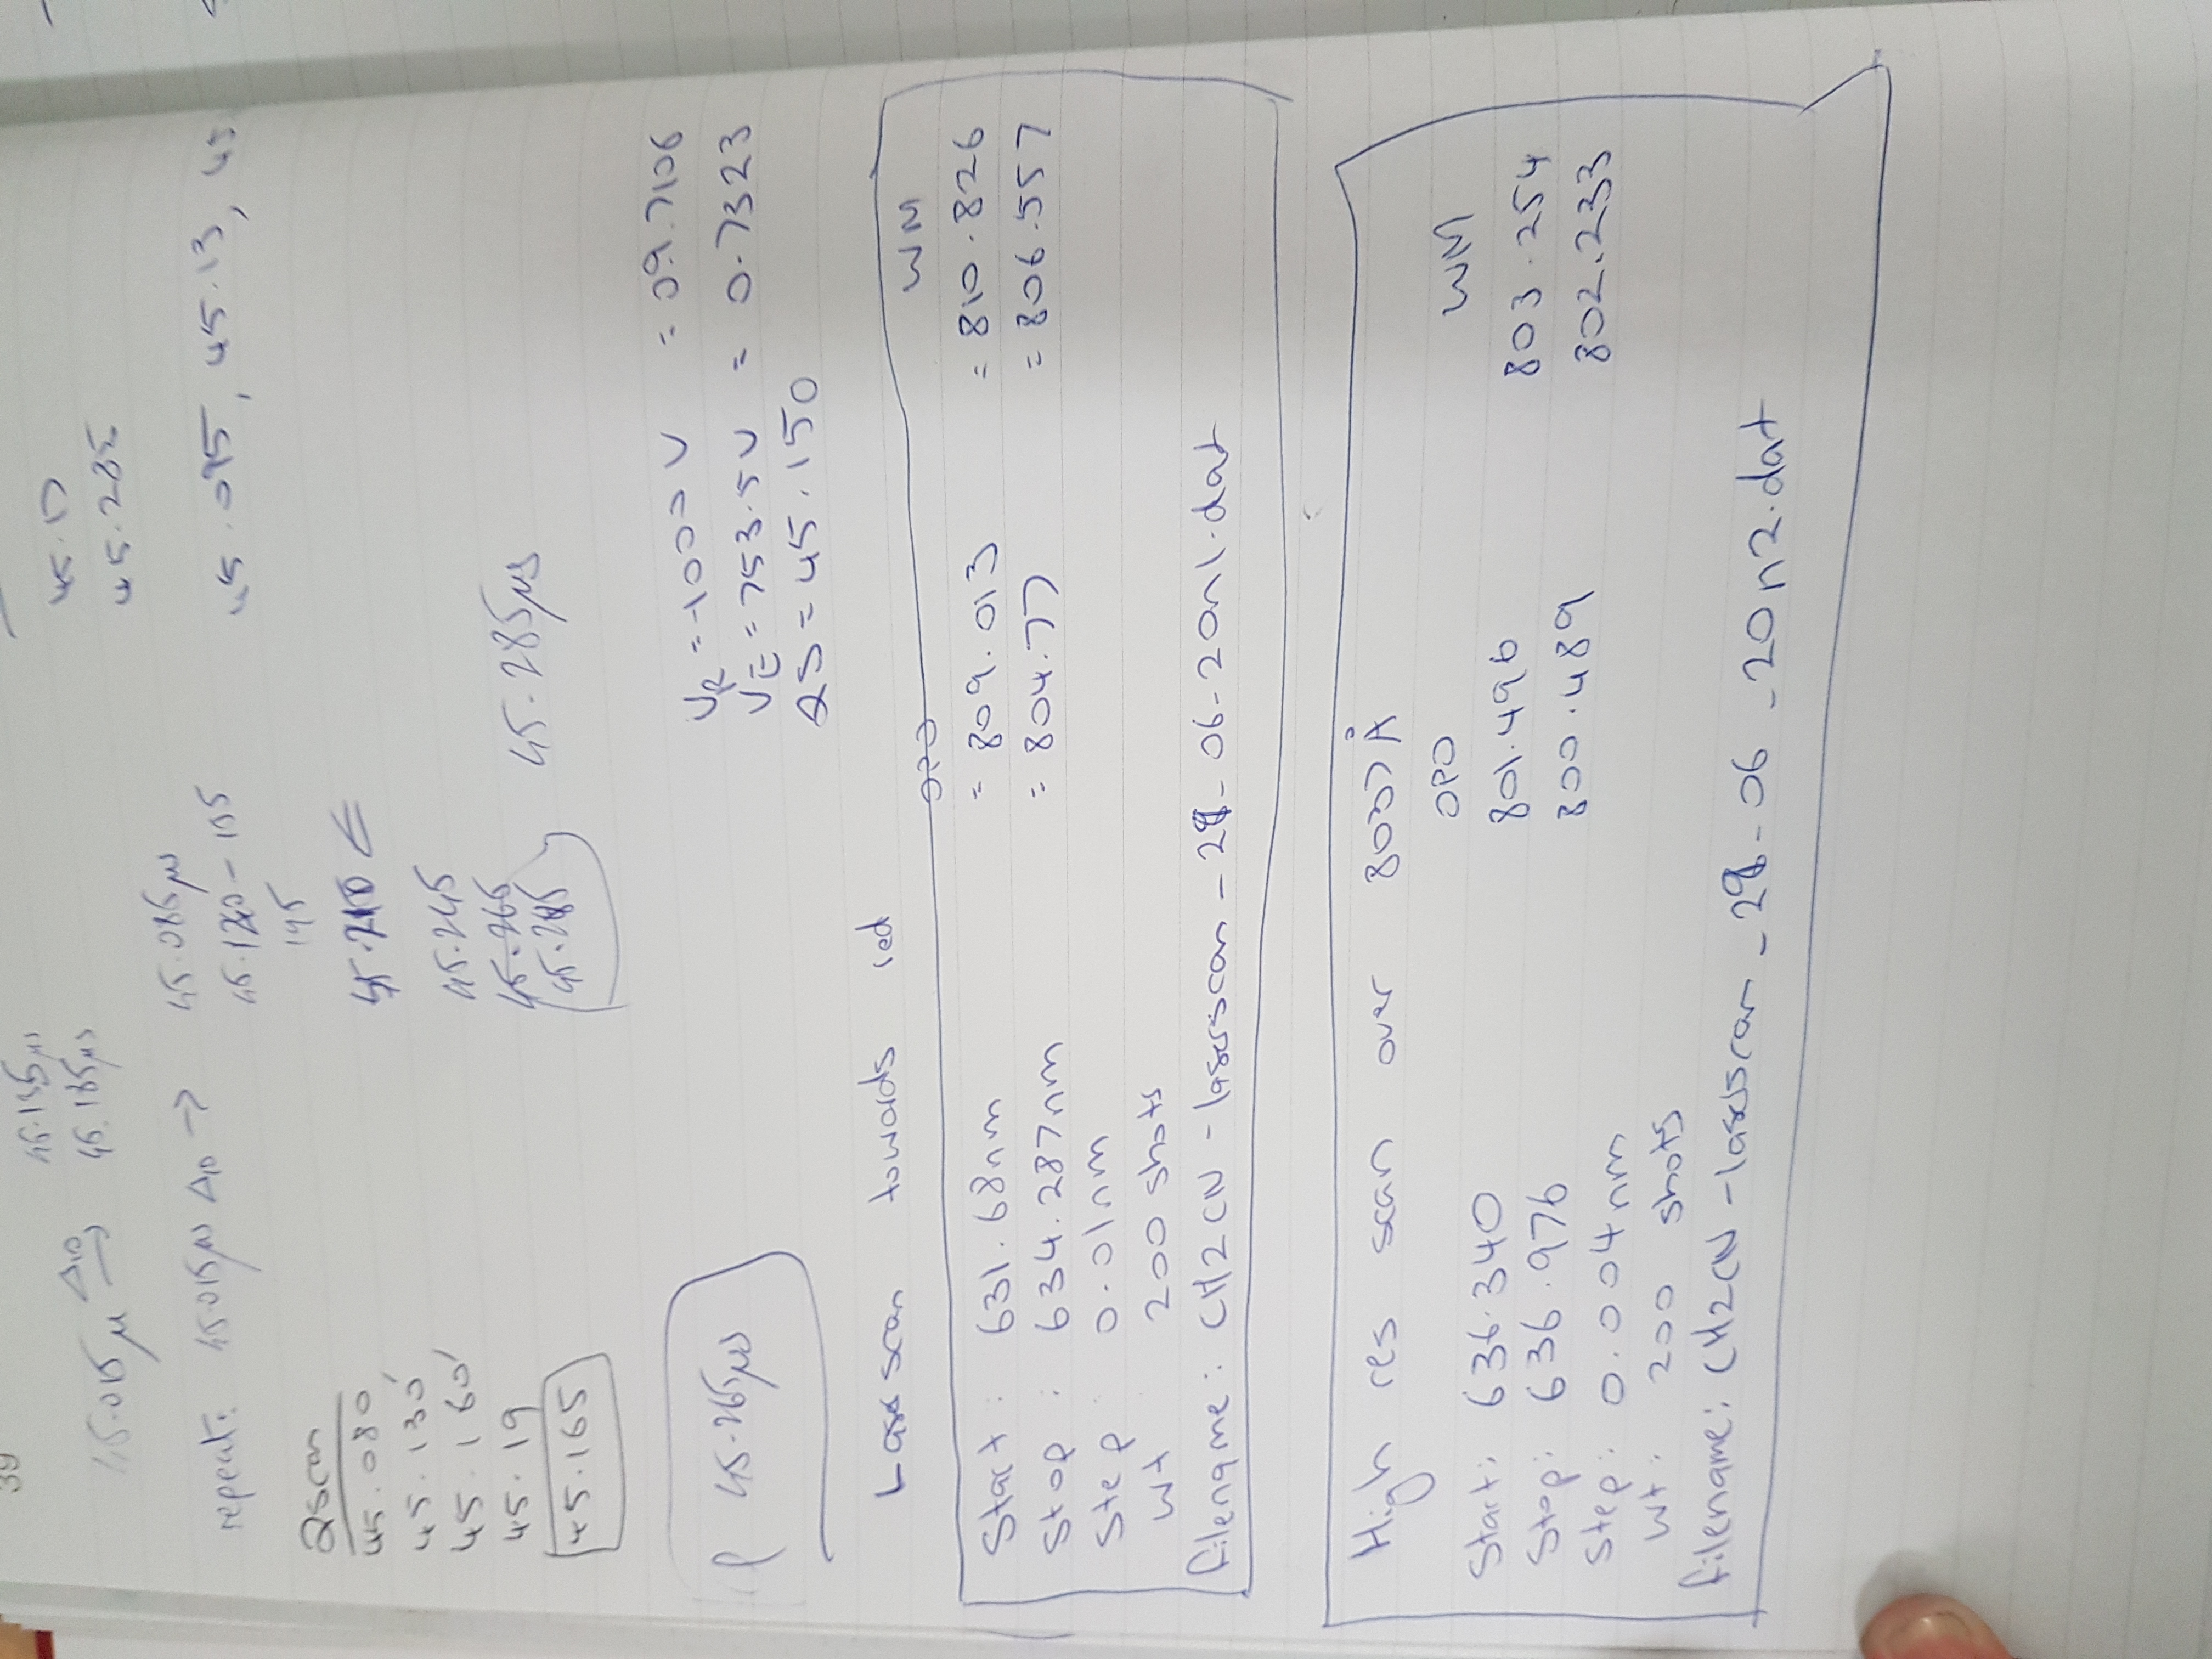 39
45.135μs
45.015μ Δ10 → 45.185μs
45.17
45.285
repeat: 45.015μs Δ10 → 45.085μs
45.120 - 135
195
45.210 ⇐
45.245
45.265
45.285
45.285μs
45.095, 45.13, 45
QScan
45.080
45.130
45.160
45.19
45.165
45.265μs
VR = -1000 V = 09.7106
VE = 753.5V = 0.7323
QS = 45.150
Laserscan towards red
OPO WM
Start: 631.68nm = 809.013 = 810.826
Stop: 634.287nm = 804.77 = 806.557
Step: 0.01nm
Wt 200 shots
filename: CH2CN-laserscan_28-06-20n1.dat
High res scan over 8037Å
OPO WM
Start: 636.340 801.496 803.254
Stop: 636.976 800.489 802.233
Step: 0.004nm
Wt: 200 shots
filename: CH2CN-laserscan_28-06_20n2.dat